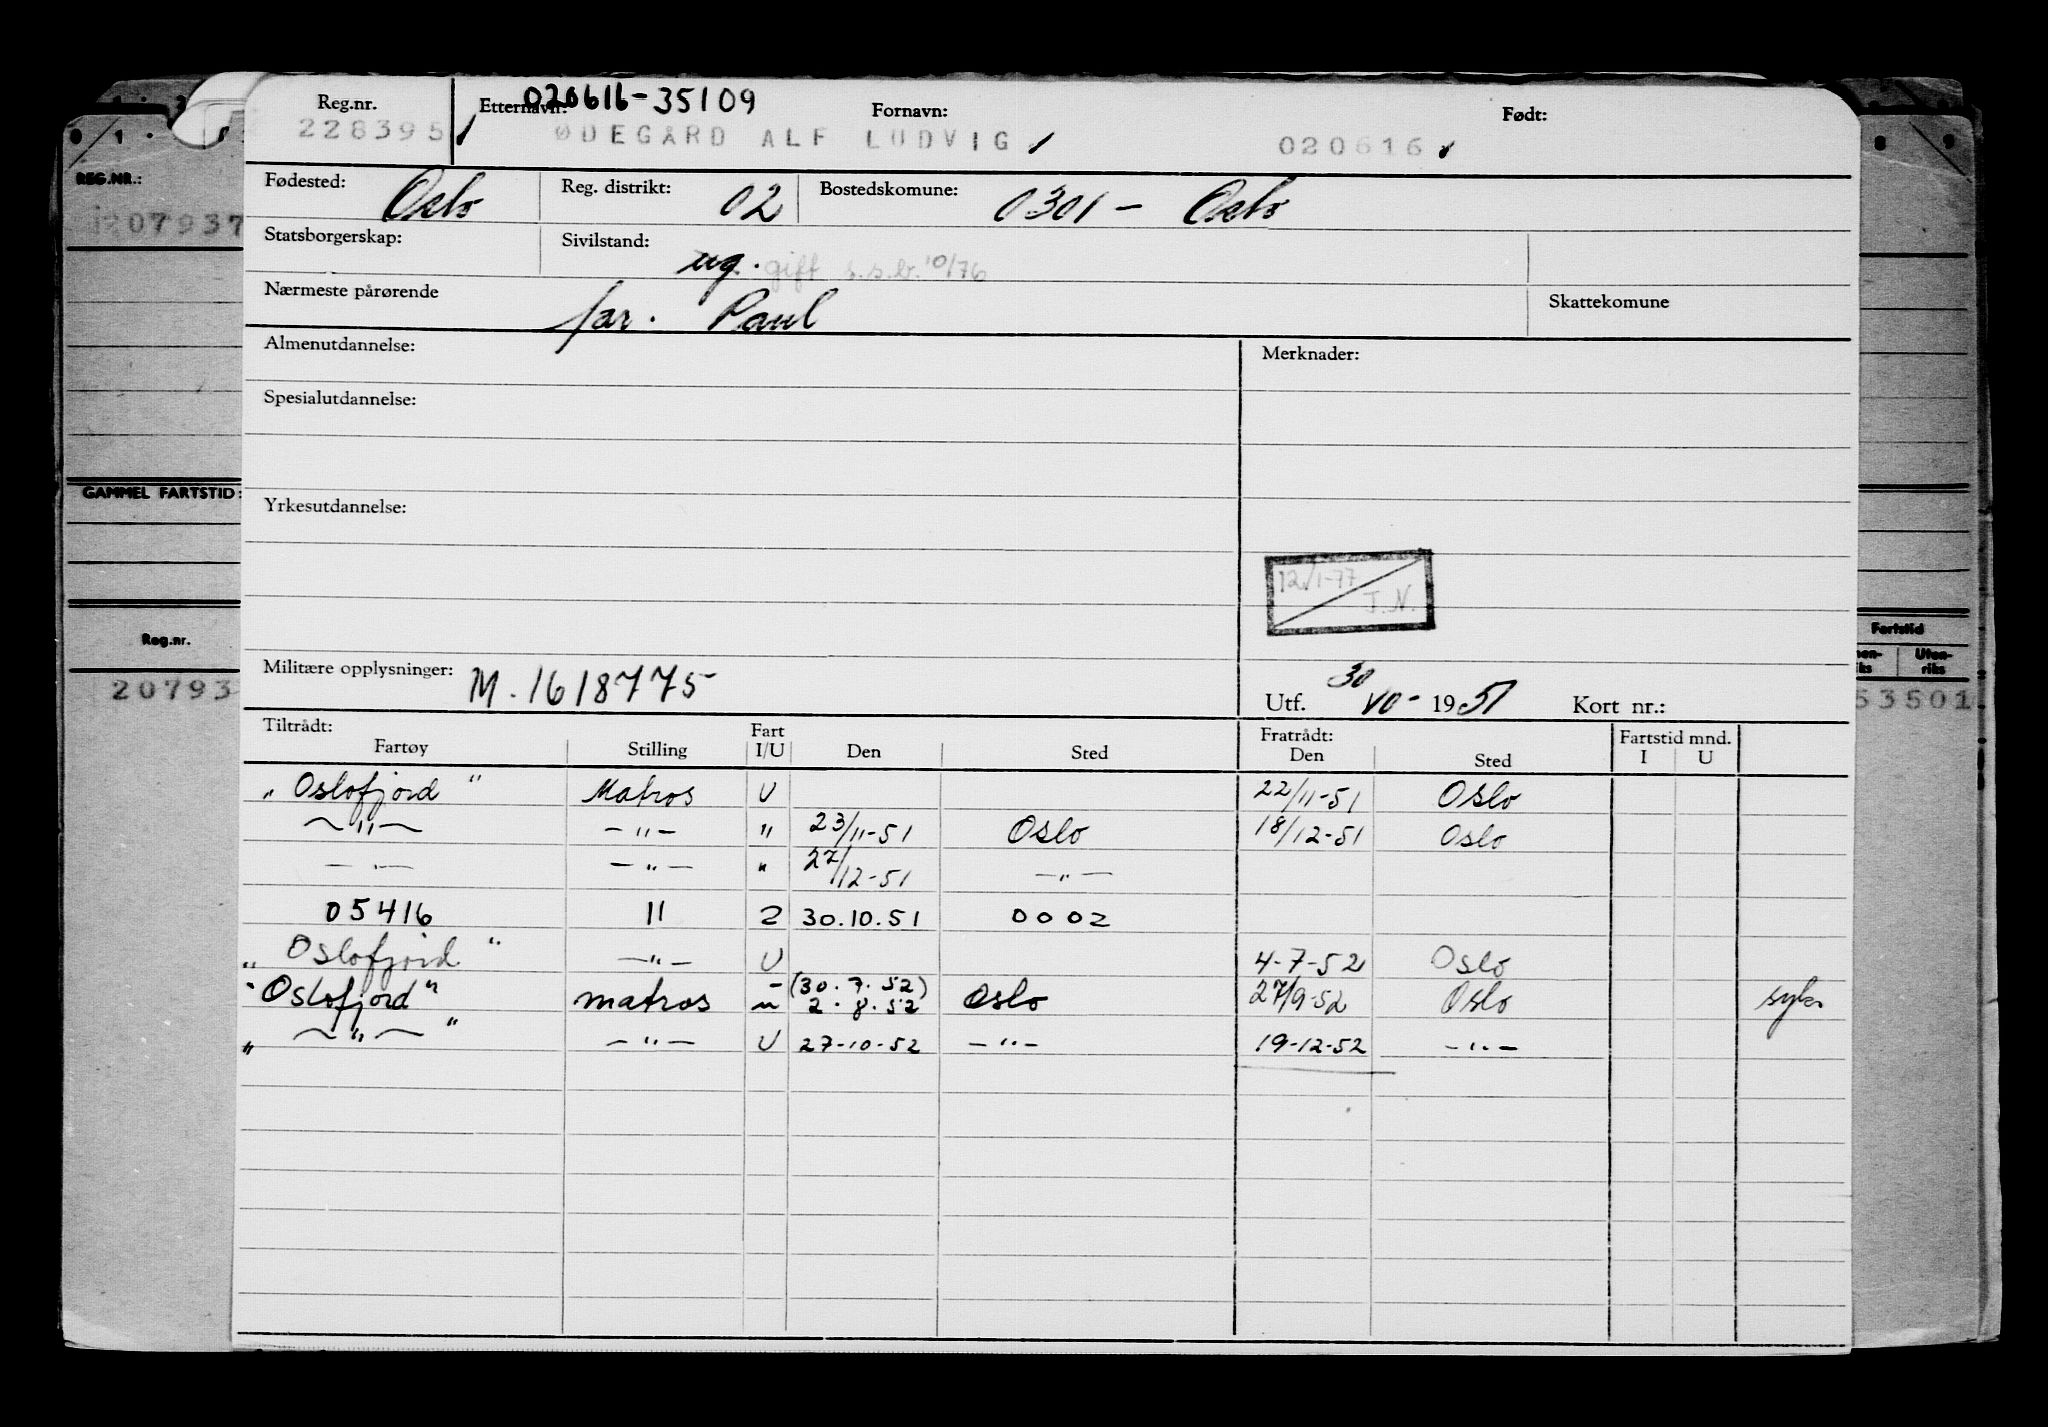 020616-35109
Reg.nr. Etternavn: Fornavn: Født:
228395 ØDEGÅRD ALF LUDVIG 020616
Fødested: Oslo Reg. distrikt: 02 Bostedskomune: 0301 - Oslo
Statsborgerskap: Sivilstand: ug. gift s.s.b. 10/76
Nærmeste pårørende far. Paul Skattekomune
Almenutdannelse: Merknader:
Spesialutdannelse:
Yrkesutdannelse:
12/1-77
J.N.
Militære opplysninger: M. 1618775
Utf. 30 VII - 1951 Kort nr.:
Tiltrådt: Fart Fratrådt: Fartstid mnd.
Fartøy Stilling I/U Den Sted Den Sted I U
"Oslofjord" Matros U 22/11-51 Oslo
—"— —"— " 23/11-51 Oslo 18/12-51 Oslo
—"— —"— " 27/12-51 —"—
05416 11 2 30.10.51 0002
"Oslofjord" —"— U 4-7-52 Oslo
"Oslofjord" matros - (30.7.52)
u 2.8.52 Oslo 27/9-52 Oslo syk
"—"—" —"— U 27-10-52 —"— 19-12-52 —"—
REG.NR.:
207937
GAMMEL FARTSTID:
Reg.nr.
20793
8 9
Fartstid
Uten-
riks
53501